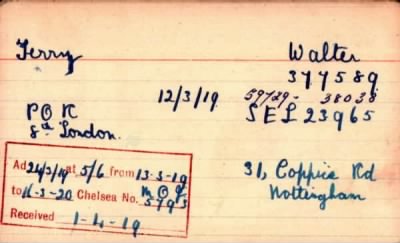 Terry Walter
377589
12/3/19 59729 - 38038
P O R SEL 23965
8th London.
Ad 24/3/19 at 5/6 from 13-3-19
to 11-3-20 Chelsea No. M O 9/
5793
Received 1-4-19
31, Coppice Rd
Nottingham